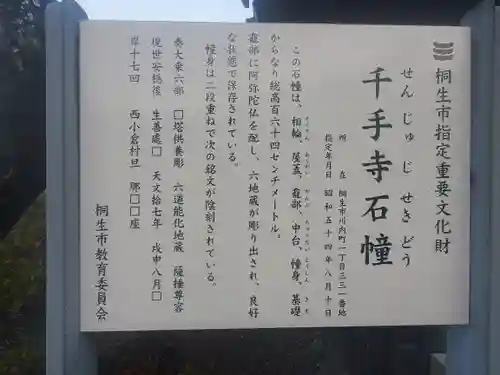 桐生市指定重要文化財
せんじゅじせきどう
千手寺石幢
所在 桐生市川内町一丁目三三一番地
指定年月日 昭和五十四年八月十日
この石幢は、相輪、屋蓋、龕部、中台、幢身、基礎
からなり総高百六十四センチメートル。
龕部に阿弥陀仏を配し、六地蔵が彫り出され、良好
な状態で保存されている。
幢身は二段重ねで次の銘文が陰刻されている。
奏大乗六部 □塔供養彫 六道能化地蔵 薩捶尊容
現世安穏後 生善處□ 天文拾七年 戊申八月□
岸十七回 西小倉村旦 那□□座
桐生市教育委員会